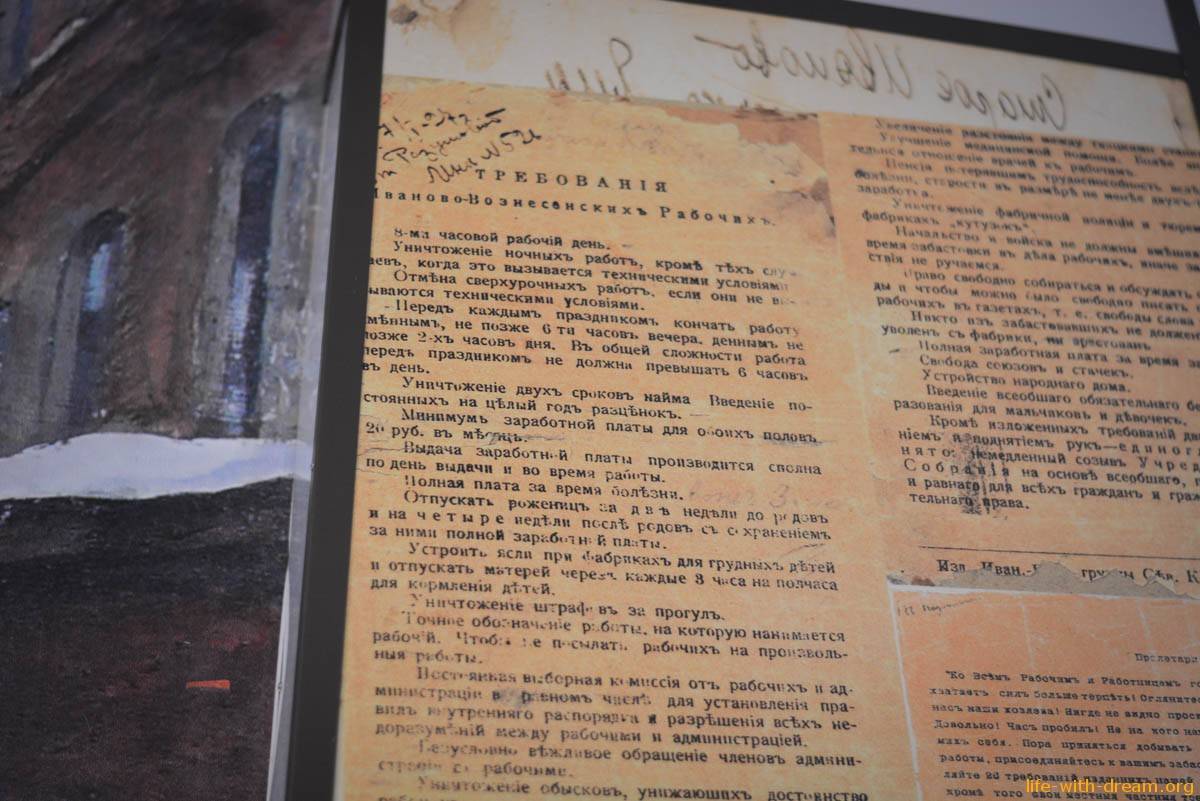 Старое Иваново
№ 521
ТРЕБОВАНІЯ
Иваново-Вознесенскихъ Рабочихъ.
8-ми часовой рабочій день.
Уничтоженіе ночныхъ работъ, кромѣ тѣхъ слу-
аевъ, когда это вызывается техническими условіями
Отмѣна сверхурочныхъ работъ, если они не вы-
ываются техническими условіями.
Передъ каждымъ праздникомъ кончать работу
мѣннымъ, не позже 6 ти часовъ вечера, деннымъ не
позже 2-хъ часовъ дня. Въ общей сложности работа
передъ праздникомъ не должна превышать 6 часовъ
въ день.
Уничтоженіе двухъ сроковъ найма Введеніе по-
стоянныхъ на цѣлый годъ разцѣнокъ.
Минимумъ заработной платы для обоихъ половъ
20 руб. въ мѣсяцъ.
Выдача заработной платы производится сполна
по день выдачи и во время работы.
Полная плата за время болѣзни.
Отпускать роженицъ за двѣ недѣли до родовъ
и на четыре недѣли послѣ родовъ съ сохраненіемъ
за ними полной заработной платы.
Устроить ясли при фабрикахъ для грудныхъ дѣтей
и отпускать матерей черезъ каждые 3 часа на полчаса
для кормленія дѣтей.
Уничтоженіе штрафовъ за прогулъ.
Точное обозначеніе работы, на которую нанимается
рабочій. Чтобы не посылать рабочихъ на произволь-
ныя работы.
Постоянная выборная комиссія отъ рабочихъ и ад-
министраціи въ равномъ числѣ для установленія пра-
вилъ внутренняго распорядка и разрѣшенія всѣхъ не-
доразумѣній между рабочими и администраціей.
Безусловно вѣжливое обращеніе членовъ админи-
страціи съ рабочими.
Уничтоженіе обысковъ, унижающихъ достоинство
Увеличеніе разстоянія между ткацкими
Улучшеніе медицинской помощи. Болѣе
тельное отношеніе врачей къ рабочимъ.
Пенсія потерявшимъ трудоспособность
болѣзни, старости въ размѣрѣ не менѣе двухъ
заработка.
Уничтоженіе фабричной полиціи и тюрем
фабрикахъ „кутузокъ".
Начальство и войска не должны вмѣшив
время забастовки въ дѣла рабочихъ, иначе за
ствія не ручаемся.
Право свободно собираться и обсуждать
ды и чтобы можно было свободно писать
рабочихъ въ газетахъ, т. е. свободы слова
Никто изъ забастовавшихъ не долженъ
уволенъ съ фабрики, ни арестованъ.
Полная заработная плата за время за
Свобода союзовъ и стачекъ.
Устройство народнаго дома.
Введеніе всеобщаго обязательнаго бе
разованія для мальчиковъ и дѣвочекъ.
Кромѣ изложенныхъ требованій до
ніемъ и поднятіемъ рукъ—единогл
нято: немедленный созывъ Учред
Собранія на основѣ всеобщаго, п
и равнаго для всѣхъ гражданъ и граж
тельнаго права.
Изд. Иван. группы Сѣв. К
Пролетарі
"Ко Всѣмъ Рабочимъ и Работницамъ го
хватаетъ силъ больше терпѣть! Оглянитес
насъ наши хозяева! Нигде не видно просв
Довольно! Часъ пробилъ! Не на кого нам
михъ себя. Пора приняться добывать
работы, присоединяйтесь къ вашимъ забас
ляйте 26 требованій изданныхъ нашей
кромѣ того свои мѣстныя частныя
life-with-dream.org